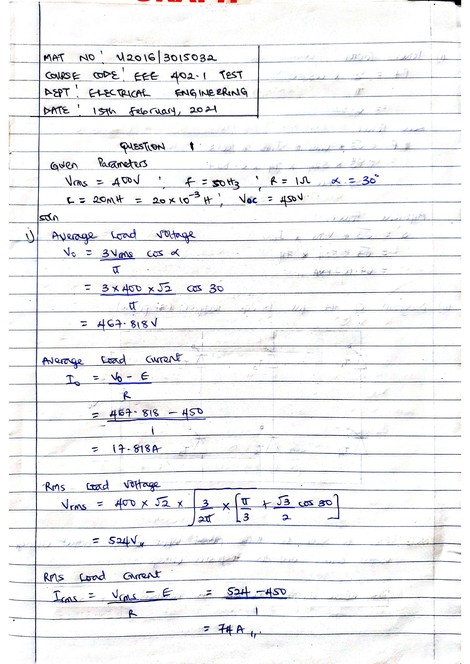 MAT NO: U2016/3015032
COURSE CODE: EEE 402.1 TEST
DEPT: ELECTRICAL ENGINEERING
DATE: 15th February, 2021
QUESTION 1
Given Parameters
Vrms = 400V ; f = 50Hz ; R = 1Ω α = 30°
L = 20MH = 20 × 10⁻³ H ; VDC = 450V
soln
i) Average Load Voltage
V₀ = 3Vrms cos α
π
= 3 × 400 × √2 cos 30
π
= 467.818V
Average Load Current
I₀ = V₀ - E
R
= 467.818 - 450
1
= 17.818A
Rms Load Voltage
Vrms = 400 × √2 × √ 3/2π × [π/3 + √3/2 cos 30]
= 524V,,
Rms Load Current
Irms = Vrms - E = 524 - 450
R 1
= 74A,,